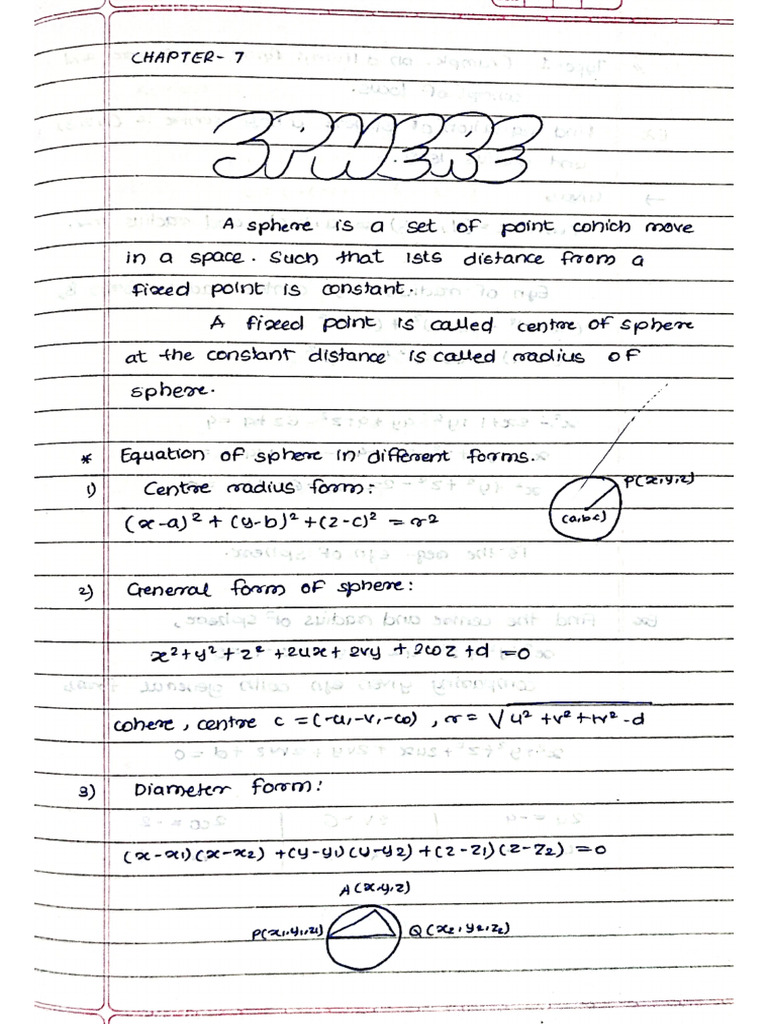 CHAPTER- 7
SPHERE
A sphere is a set of point which move
in a space. Such that ists distance from a
fixed point is constant.
A fixed point is called centre of sphere
at the constant distance is called radius of
sphere.
* Equation of sphere in different forms.
1) Centre radius form:
P(x,y,z)
(x-a)² + (y-b)² + (z-c)² = r²
(a,b,c)
2) General form of sphere:
x² + y² + z² + 2ux + 2vy + 2wz + d = 0
where, centre c = (-u, -v, -w), r = √u² + v² + w² - d
3) Diameter form:
(x-x₁)(x-x₂) + (y-y₁)(y-y₂) + (z-z₁)(z-z₂) = 0
A(x,y,z)
P(x₁,y₁,z₁) Q(x₂,y₂,z₂)